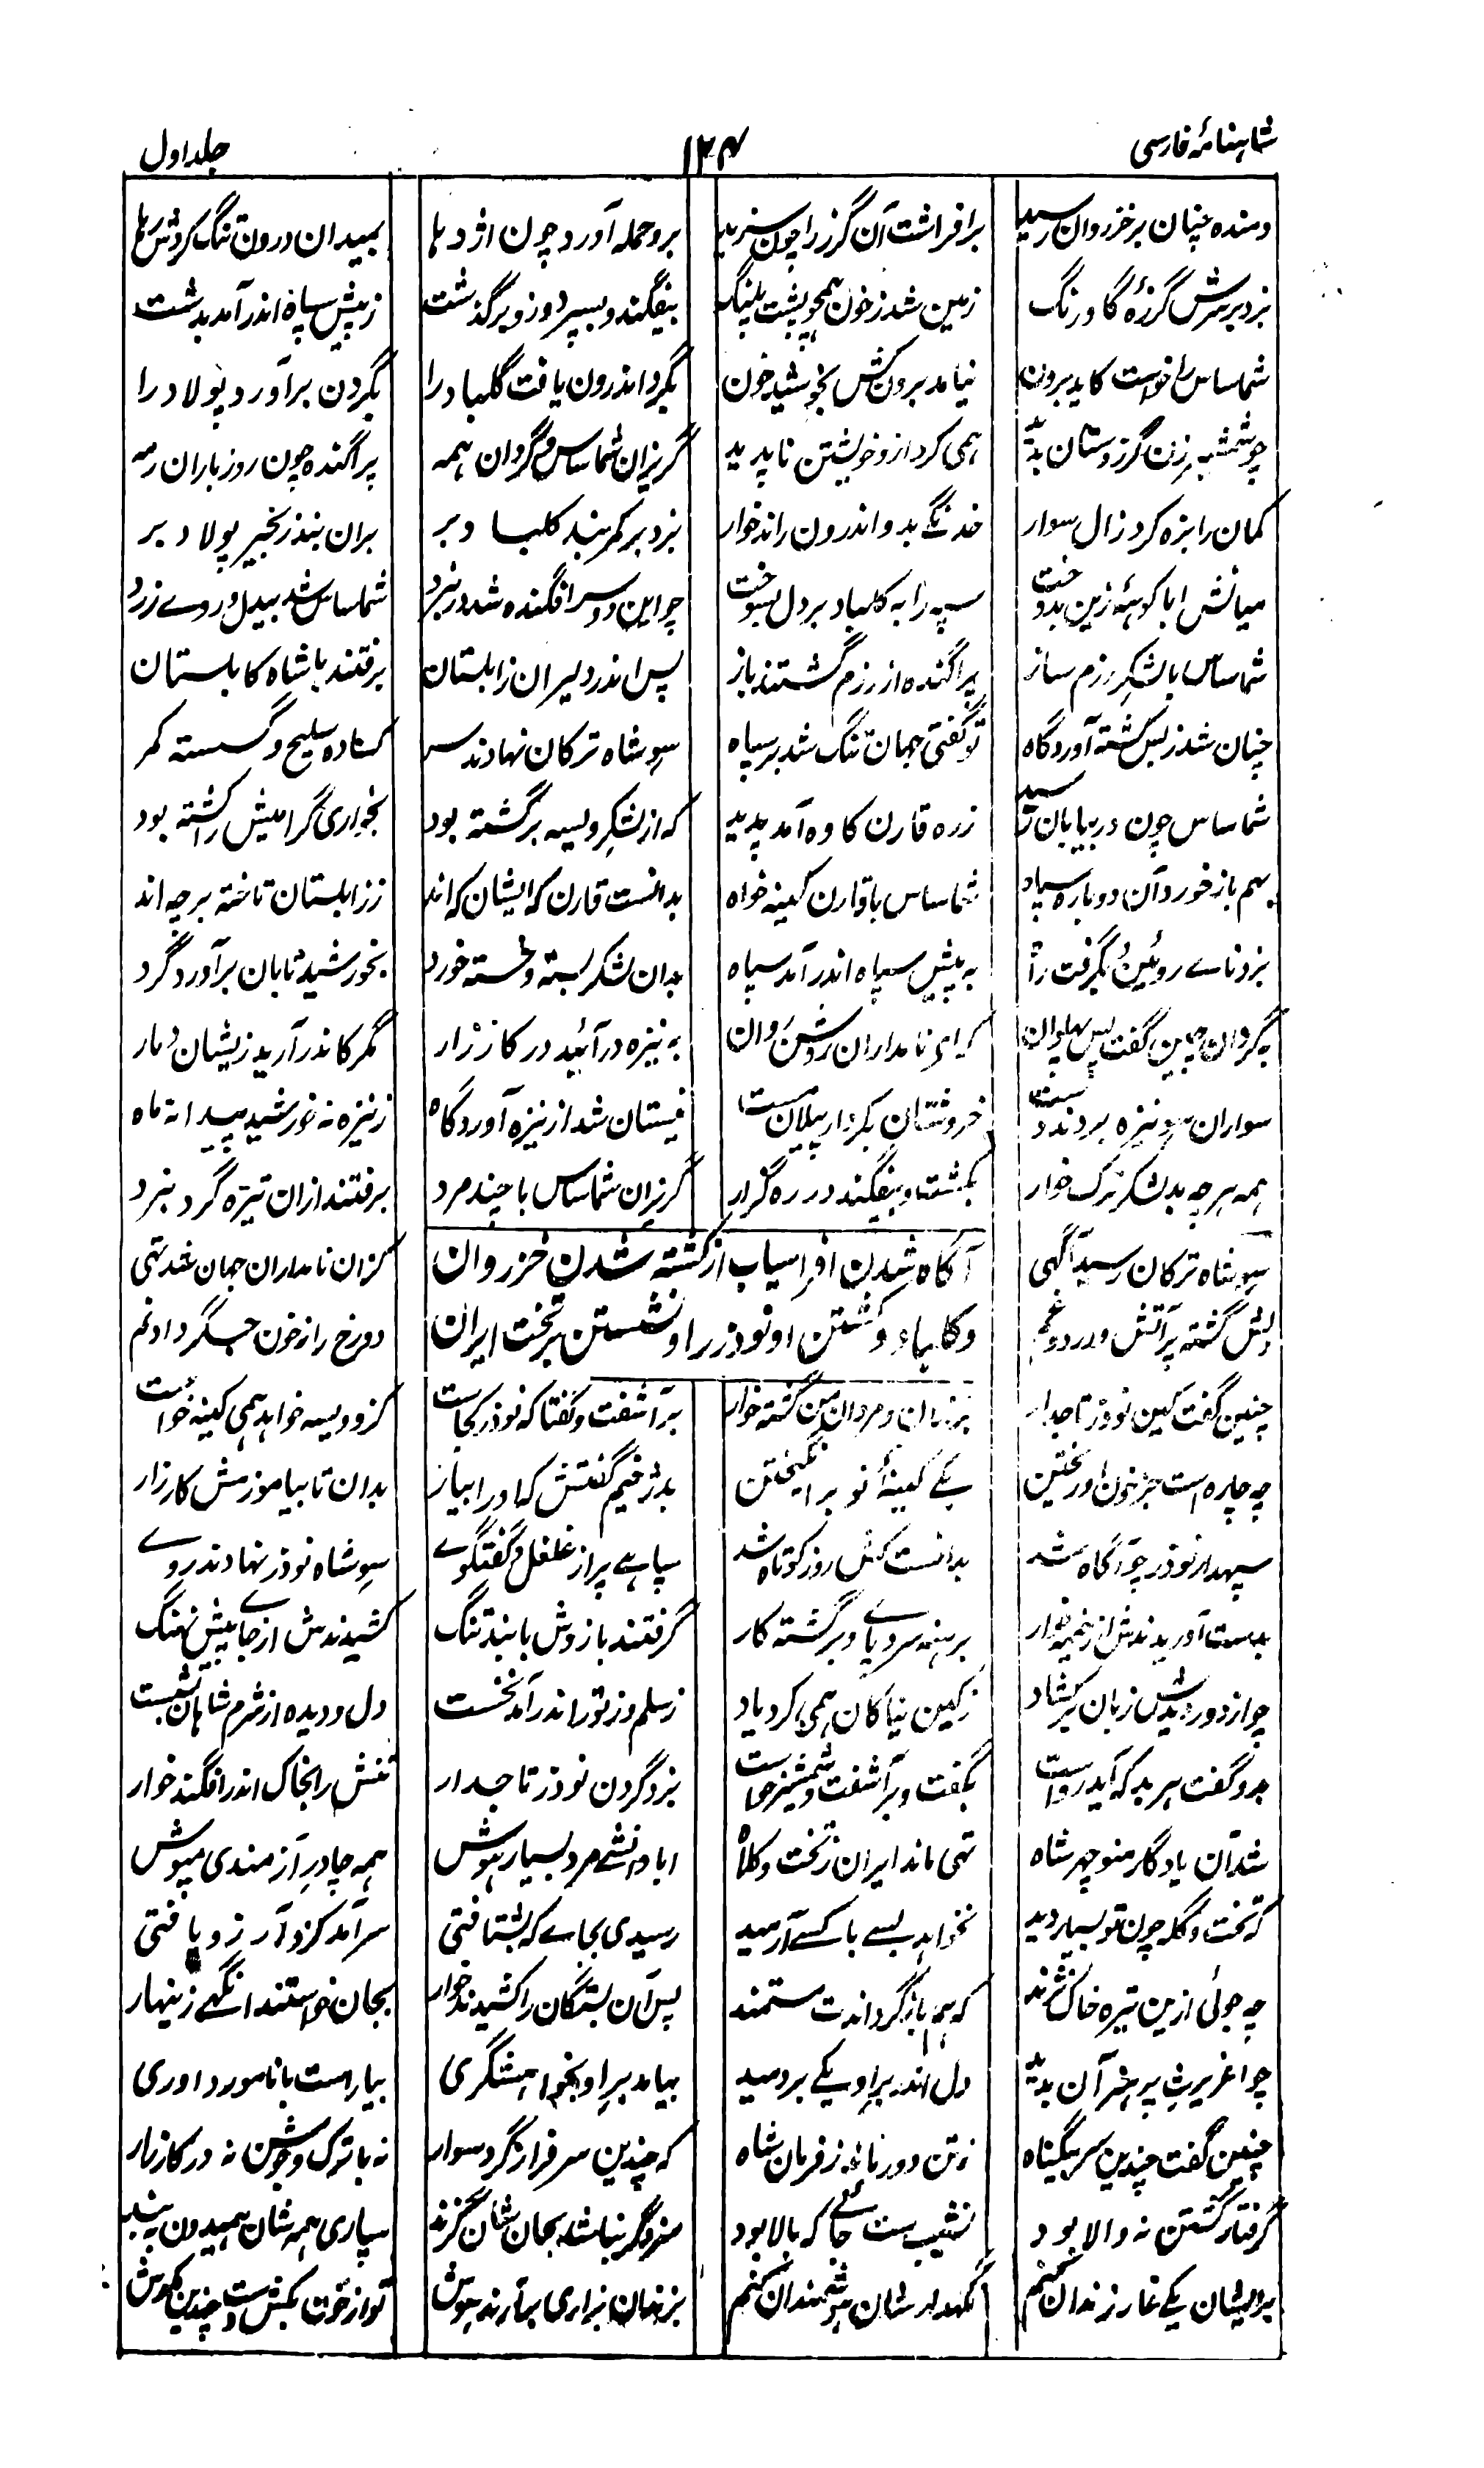 شاہنامۂ فارسی ۱۲۴ جلد اول
دمنده چنان بر خزروان رسید برافراشت آن گرز را چون سزید برو حمله آورد چون اژدها بمیدان درون تنگ کردش رها
بزد بر سرش گرزۂ گاو رنگ زمین شد ز خون همچو پشت پلنگ بیفگند و بسپرد و زو برگذشت ز پیش سپاه اندر آمد بدشت
شماساس را خواست کاید برون نیامد برون کش بخوشید خون بگرد اندرون یافت گلباد را بگردن برآورد پولاد را
چو شمشیر زن گرز دستان بدید همی کرد ازو خویشتن ناپدید گریزان شماساس و گردان همه پراگنده چون روز باران رمه
کمان را بزه کرد زال سوار خدنگے بدو اندرون راند خوار بزد بر کمربند کلباد بر بران بند زنجیر پولاد بر
میانش ابا کوہۂ زین بدوخت سپه را به کلباد بر دل بسوخت چو این دو سر افگنده شد در نبرد شماساس شد بیدل و روے زرد
شماساس با لشکر رزم ساز پراگنده از رزم گشتند باز پس اندر دلیران زابلستان برفتند با شاه کابلستان
چنان شد ز بس کشته آوردگاه تو گفتی جهان تنگ شد بر سپاه سوِ شاه ترکان نهادند سر کشاده سلیح و گسسته کمر
شماساس چون در بیابان رسید ز ره قارن کاوه آمد پدید که از لشکر ویسه برگشته بود بخواری گرامیش را کشته بود
بهم باز خورد آن دو باره سپاه شماساس با قارن کینه خواه بدانست قارن که ایشان که اند ز زابلستان تاخته بر چه اند
بزد ناے روئین و بگرفت راه به پیش سپاه اندر آمد سپاه بدان لشکر بسته و خسته خورد بخورشید تابان برآورد گرد
بگردان چنین گفت پس پهلوان که ای نامداران روشن روان به نیزه درآئید در کارزار مگر کاندر آرید زیشان دمار
سواران سوِ نیزه بردند دست خروشان بکردار پیلان مست نیستان شد از نیزه آوردگاه ز نیزه نه خورشید پیدا نه ماه
همه هر چه بد لشکر ترک خوار بکشت و بیفگند در ره گزار گریزان شماساس با چند مرد برفتند ازان تیره گرد نبرد
آگاه شدن افراسیاب از کشته شدن خزروان
و کلباد و کشتن او نوذر را و نشستن بر تخت ایران
سوِ شاه ترکان رسید آگهی کزان نامداران جهان شد تهی
دلش گشته پر آتش و درد و غم دو رخ را ز خون جگر داد نم
چنین گفت کین نوذر تاجدار بزندان و مردان من کشته خوار برآشفت و گفتا که نوذر کجاست کزو ویسه خواهد همی کینه خواست
چه چاره است جز خون او ریختن یکے کینۂ نو برانگیختن بدژخیم گفتش که او را بیار بدان تا بیاموزمش کارزار
سپهدار نوذر چو آگاه شد بدانست کش روز کوتاه شد سپاهے پر از غلغل و گفتگوے سوِ شاه نوذر نهادند روے
بدست آوریدندش از خیمه خوار برهنه سر و پاے و برگشته کار گرفتند بازوش با بند تنگ کشیدندش از جاے پیش نهنگ
چو از دور دیدش زبان برکشاد ز کین نیاکان همی کرد یاد ز سلم و ز تور اندر آمد نخست دل و دیده از شرم شاهان بشست
بدو گفت هر بد که آید رواست بگفت و برآشفت و شمشیر خواست بزد گردن نوذر تاجدار تنش را بخاک اندر افگند خوار
شد آن یادگار منوچهر شاه تهی ماند ایران ز تخت و کلاه ابا دانشی مرد بسیار هوش همه چادر آزمندی مپوش
که تخت و کله چون تو بسیار دید نخواهد بسے با کسے آرمید رسیدی بجاے که بشتافتی سرآمد کزو آرزو یافتی
چه جوئی ازین تیره خاک نژند که هم باز گرداندت مستمند پس آن بستگان را کشیدند خوار بجان خواستند انگهے زینهار
چو اغریرث پر هنر آن بدید دل اندر براو یکے بردمید بیامد براو بخواهشگری بیاراست با نامور داوری
چنین گفت چندین سر بیگناه ز تن دور ماند ز فرمان شاه که چندین سرفراز گرد سوار نه با ترک و جوشن نه در کارزار
گرفتار کشتن نه والا بود نشیب ست جائے که بالا بود سزد گر نباشد بجان شان گزند سپاری همه شان همیدون به بند
برایشان یکے غار زندان کنم نگهدار شان هوشمندان کنم بزندان بزاری برآرند هوش تو از خون بکش دست و چندین مکوش